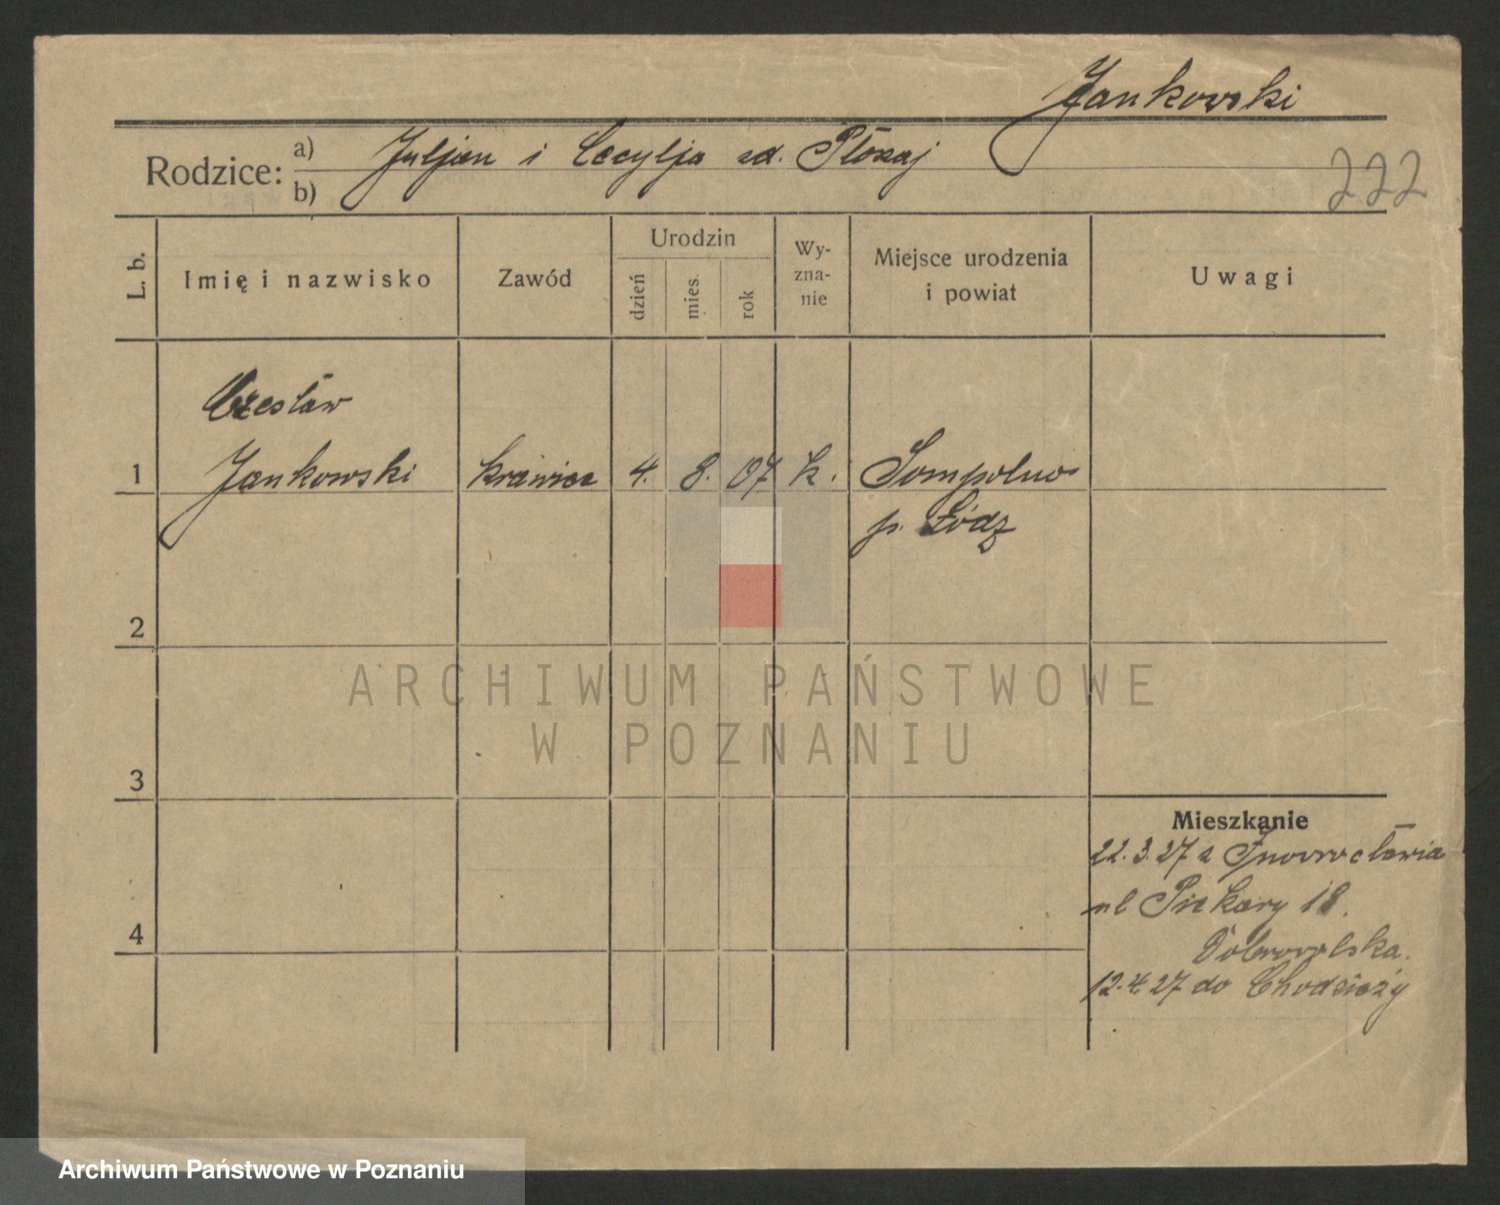 Jankowski
Rodzice: a) Juljan i Cecylja zd. Płoszaj
b)
222
L. b.
Imię i nazwisko
Zawód
Urodzin
dzień
mies.
rok
Wy-
zna-
nie
Miejsce urodzenia
i powiat
Uwagi
Czesław
1 Jankowski krawiec 4. 8. 07 k. Sompolno
p. Łódz
2
3
4
Mieszkanie
22.3.27 z Inowrocławia
ul Piekary 18.
Dobrowolska.
12.4.27 do Chodzieży
ARCHIWUM PAŃSTWOWE
W POZNANIU
Archiwum Państwowe w Poznaniu